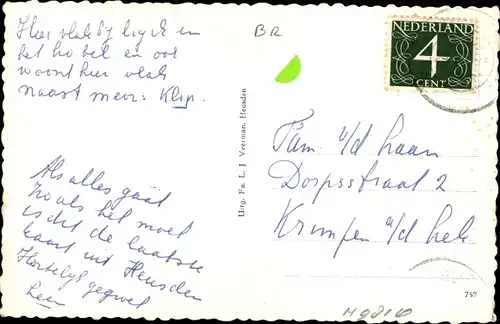 Hier vlakbij ligt en
het hotel en ook
woont hier vlak
naast mevr: Klip.
Als alles gaat
zoals het moet
is dit de laatste
kaart uit Heusden
Hartelijk gegroet
Leen
BR
Uitg. Fa. L. J. Veerman, Heusden
NEDERLAND
4
CENT
Fam. v/d Laan
Dorpsstraat 2
Krimpen a/d Lek
757